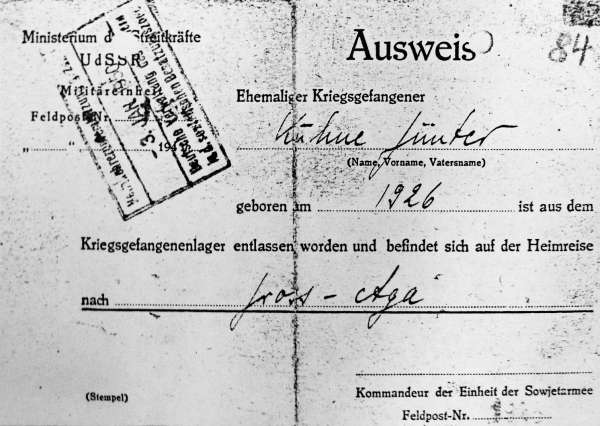 Ministerium d Streitkräfte
UdSSR
Militäreinheit
Feldpost-Nr.
„ " 194
Ausweis
84
Ehemaliger Kriegsgefangener
Kühne Günter
(Name, Vorname, Vatersname)
geboren am 1926 ist aus dem
Kriegsgefangenenlager entlassen worden und befindet sich auf der Heimreise
nach Gross - Aga
(Stempel)
Kommandeur der Einheit der Sowjetarmee
Feldpost-Nr.